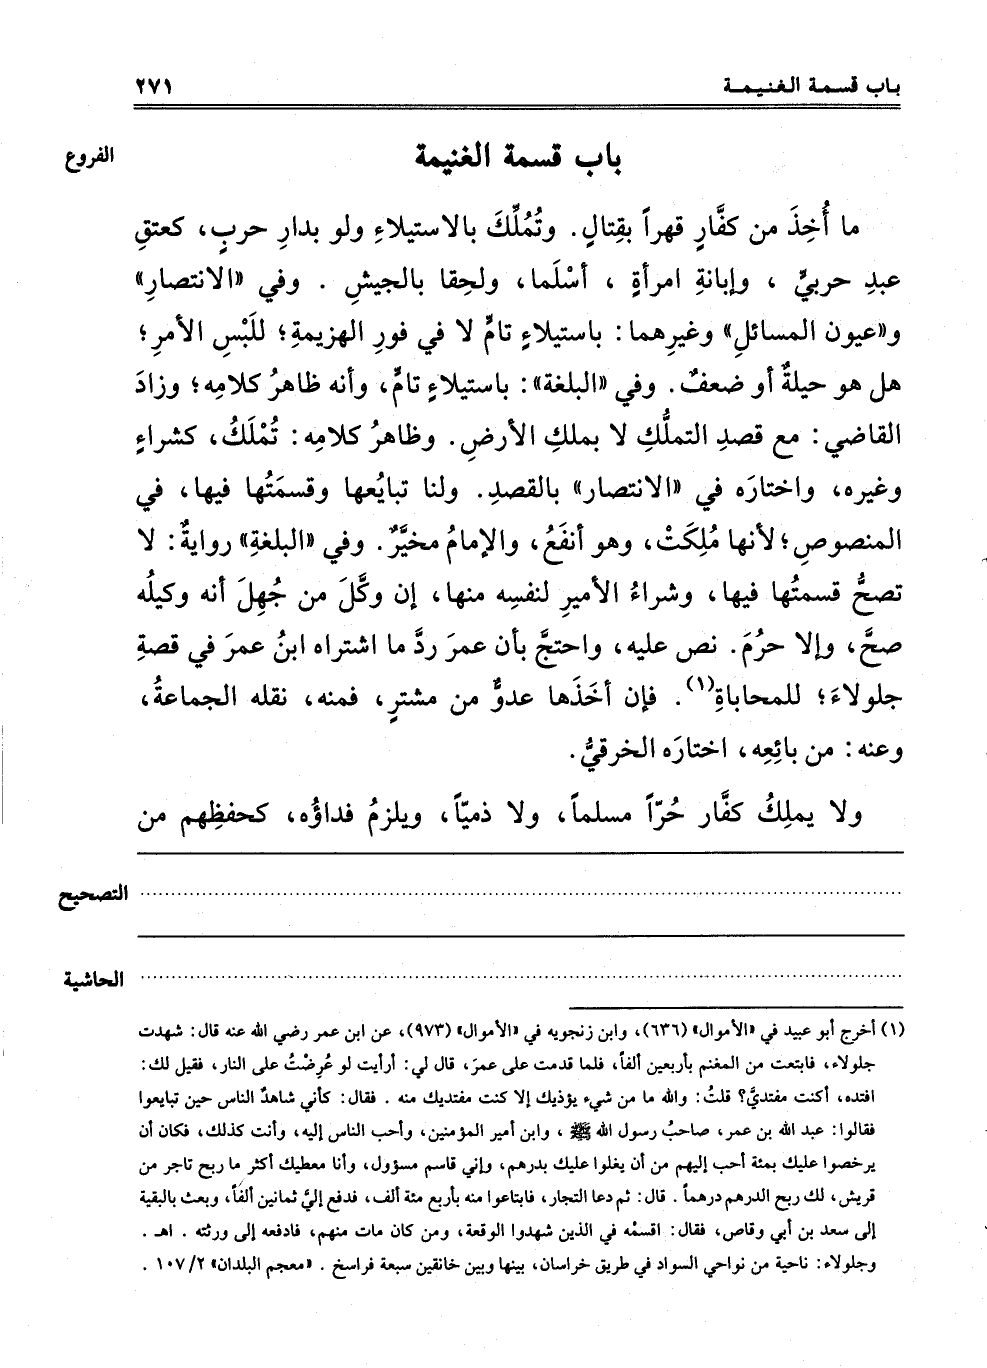 باب قسمة الغنيمة ٢٧١
باب قسمة الغنيمة
الفروع
ما أُخِذَ من كفَّارٍ قهراً بقِتالٍ. وتُمُلِّكَ بالاستيلاءِ ولو بدارِ حربٍ، كعتقِ
عبدِ حربيٍّ ، وإبانةِ امرأةٍ ، أسْلَما، ولحِقا بالجيشِ . وفي «الانتصارِ»
و«عيون المسائلِ» وغيرِهما: باستيلاءٍ تامٍّ لا في فورِ الهزيمةِ؛ للَبْسِ الأمرِ؛
هل هو حيلةٌ أو ضعفٌ. وفي «البلغة»: باستيلاءٍ تامٍّ، وأنه ظاهرُ كلامِه؛ وزادَ
القاضي: مع قصدِ التملُّكِ لا بملكِ الأرضِ. وظاهرُ كلامِه: تُمْلَكُ، كشراءٍ
وغيره، واختارَه في «الانتصار» بالقصدِ. ولنا تبايُعها وقسمَتُها فيها، في
المنصوصِ؛ لأنها مُلِكَتْ، وهو أنفَعُ، والإمامُ مخيَّرٌ. وفي «البلغةِ» روايةٌ: لا
تصحُّ قسمتُها فيها، وشراءُ الأميرِ لنفسِه منها، إن وكَّلَ من جُهِلَ أنه وكيلُه
صحَّ، وإلا حرُمَ. نص عليه، واحتجَّ بأن عمرَ ردَّ ما اشتراه ابنُ عمرَ في قصةِ
جلولاءَ؛ للمحاباةِ(١). فإن أخَذَها عدوٌّ من مشترٍ، فمنه، نقله الجماعةُ،
وعنه: من بائِعِه، اختارَه الخرقيُّ.
ولا يملِكُ كفَّار حُرّاً مسلماً، ولا ذميّاً، ويلزمُ فداؤُه، كحفظِهم من
التصحيح
الحاشية
(١) أخرج أبو عبيد في «الأموال» (٦٣٦)، وابن زنجويه في «الأموال» (٩٧٣)، عن ابن عمر رضي الله عنه قال: شهدت
جلولاء، فابتعت من المغنم بأربعين ألفاً، فلما قدمت على عمرَ، قال لي: أرأيت لو عُرِضْتُ على النار، فقيل لك:
افتده، أكنت مفتديَّ؟ قلتُ: والله ما من شيء يؤذيك إلا كنت مفتديك منه . فقال: كأني شاهدٌ الناس حين تبايعوا
فقالوا: عبد الله بن عمر، صاحبُ رسول الله ﷺ ، وابن أمير المؤمنين، وأحب الناس إليه، وأنت كذلك، فكان أن
يرخصوا عليك بمئة أحب إليهم من أن يغلوا عليك بدرهم، وإني قاسم مسؤول، وأنا معطيك أكثر ما ربح تاجر من
قريش، لك ربح الدرهم درهماً . قال: ثم دعا التجار، فابتاعوا منه بأربع مئة ألف، فدفع إليَّ ثمانين ألفاً، وبعث بالبقية
إلى سعد بن أبي وقاص، فقال: اقسمْه في الذين شهدوا الوقعة، ومن كان مات منهم، فادفعه إلى ورثته . اهـ .
وجلولاء: ناحية من نواحي السواد في طريق خراسان، بينها وبين خانقين سبعة فراسخ . «معجم البلدان» ١٠٧/٢ .